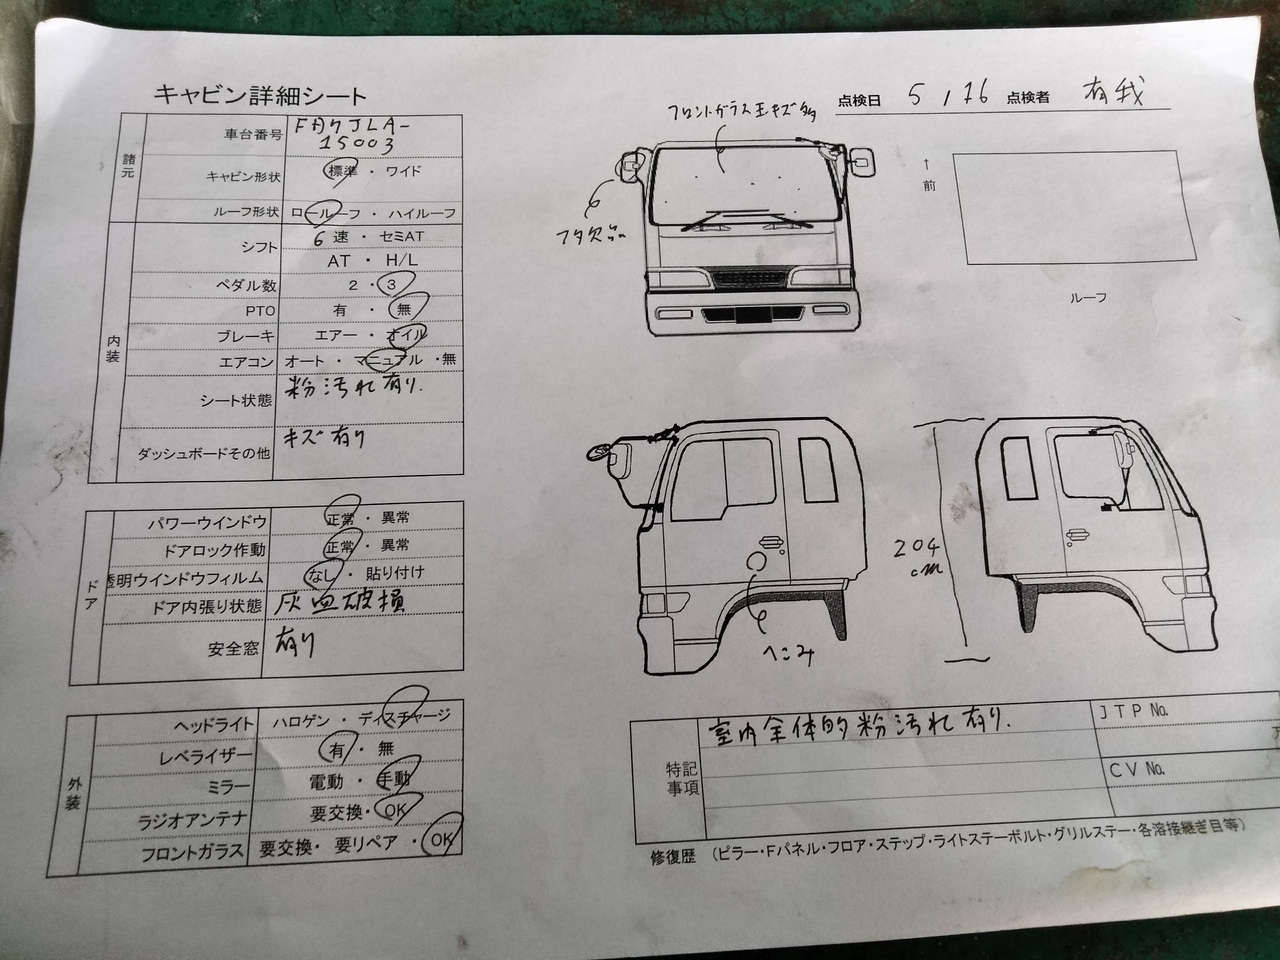 キャビン詳細シート
点検日 5 / 16 点検者 有我
諸元
車台番号 FD7JLA-
15003
キャビン形状 標準 ・ ワイド
ルーフ形状 ロールーフ ・ ハイルーフ
内装
シフト 6 速 ・ セミAT
AT ・ H/L
ペダル数 2 ・ 3
PTO 有 ・ 無
ブレーキ エアー ・ オイル
エアコン オート ・ マニュアル ・無
シート状態 粉汚れ有り.
ダッシュボードその他 キズ有り
ドア
パワーウインドウ 正常 ・ 異常
ドアロック作動 正常 ・ 異常
透明ウインドウフィルム なし ・ 貼り付け
ドア内張り状態 灰皿破損
安全窓 有り
外装
ヘッドライト ハロゲン ・ ディスチャージ
レベライザー 有 ・ 無
ミラー 電動 ・ 手動
ラジオアンテナ 要交換・ OK
フロントガラス 要交換・ 要リペア ・ OK
フロントガラス キズ多
フタ欠品
↑
前
ルーフ
204
cm
へこみ
特記
事項
室内全体的粉汚れ有り.
JTP No.
CV No.
修復歴 (ピラー・Fパネル・フロア・ステップ・ライトステーボルト・グリルステー・各溶接継ぎ目等)